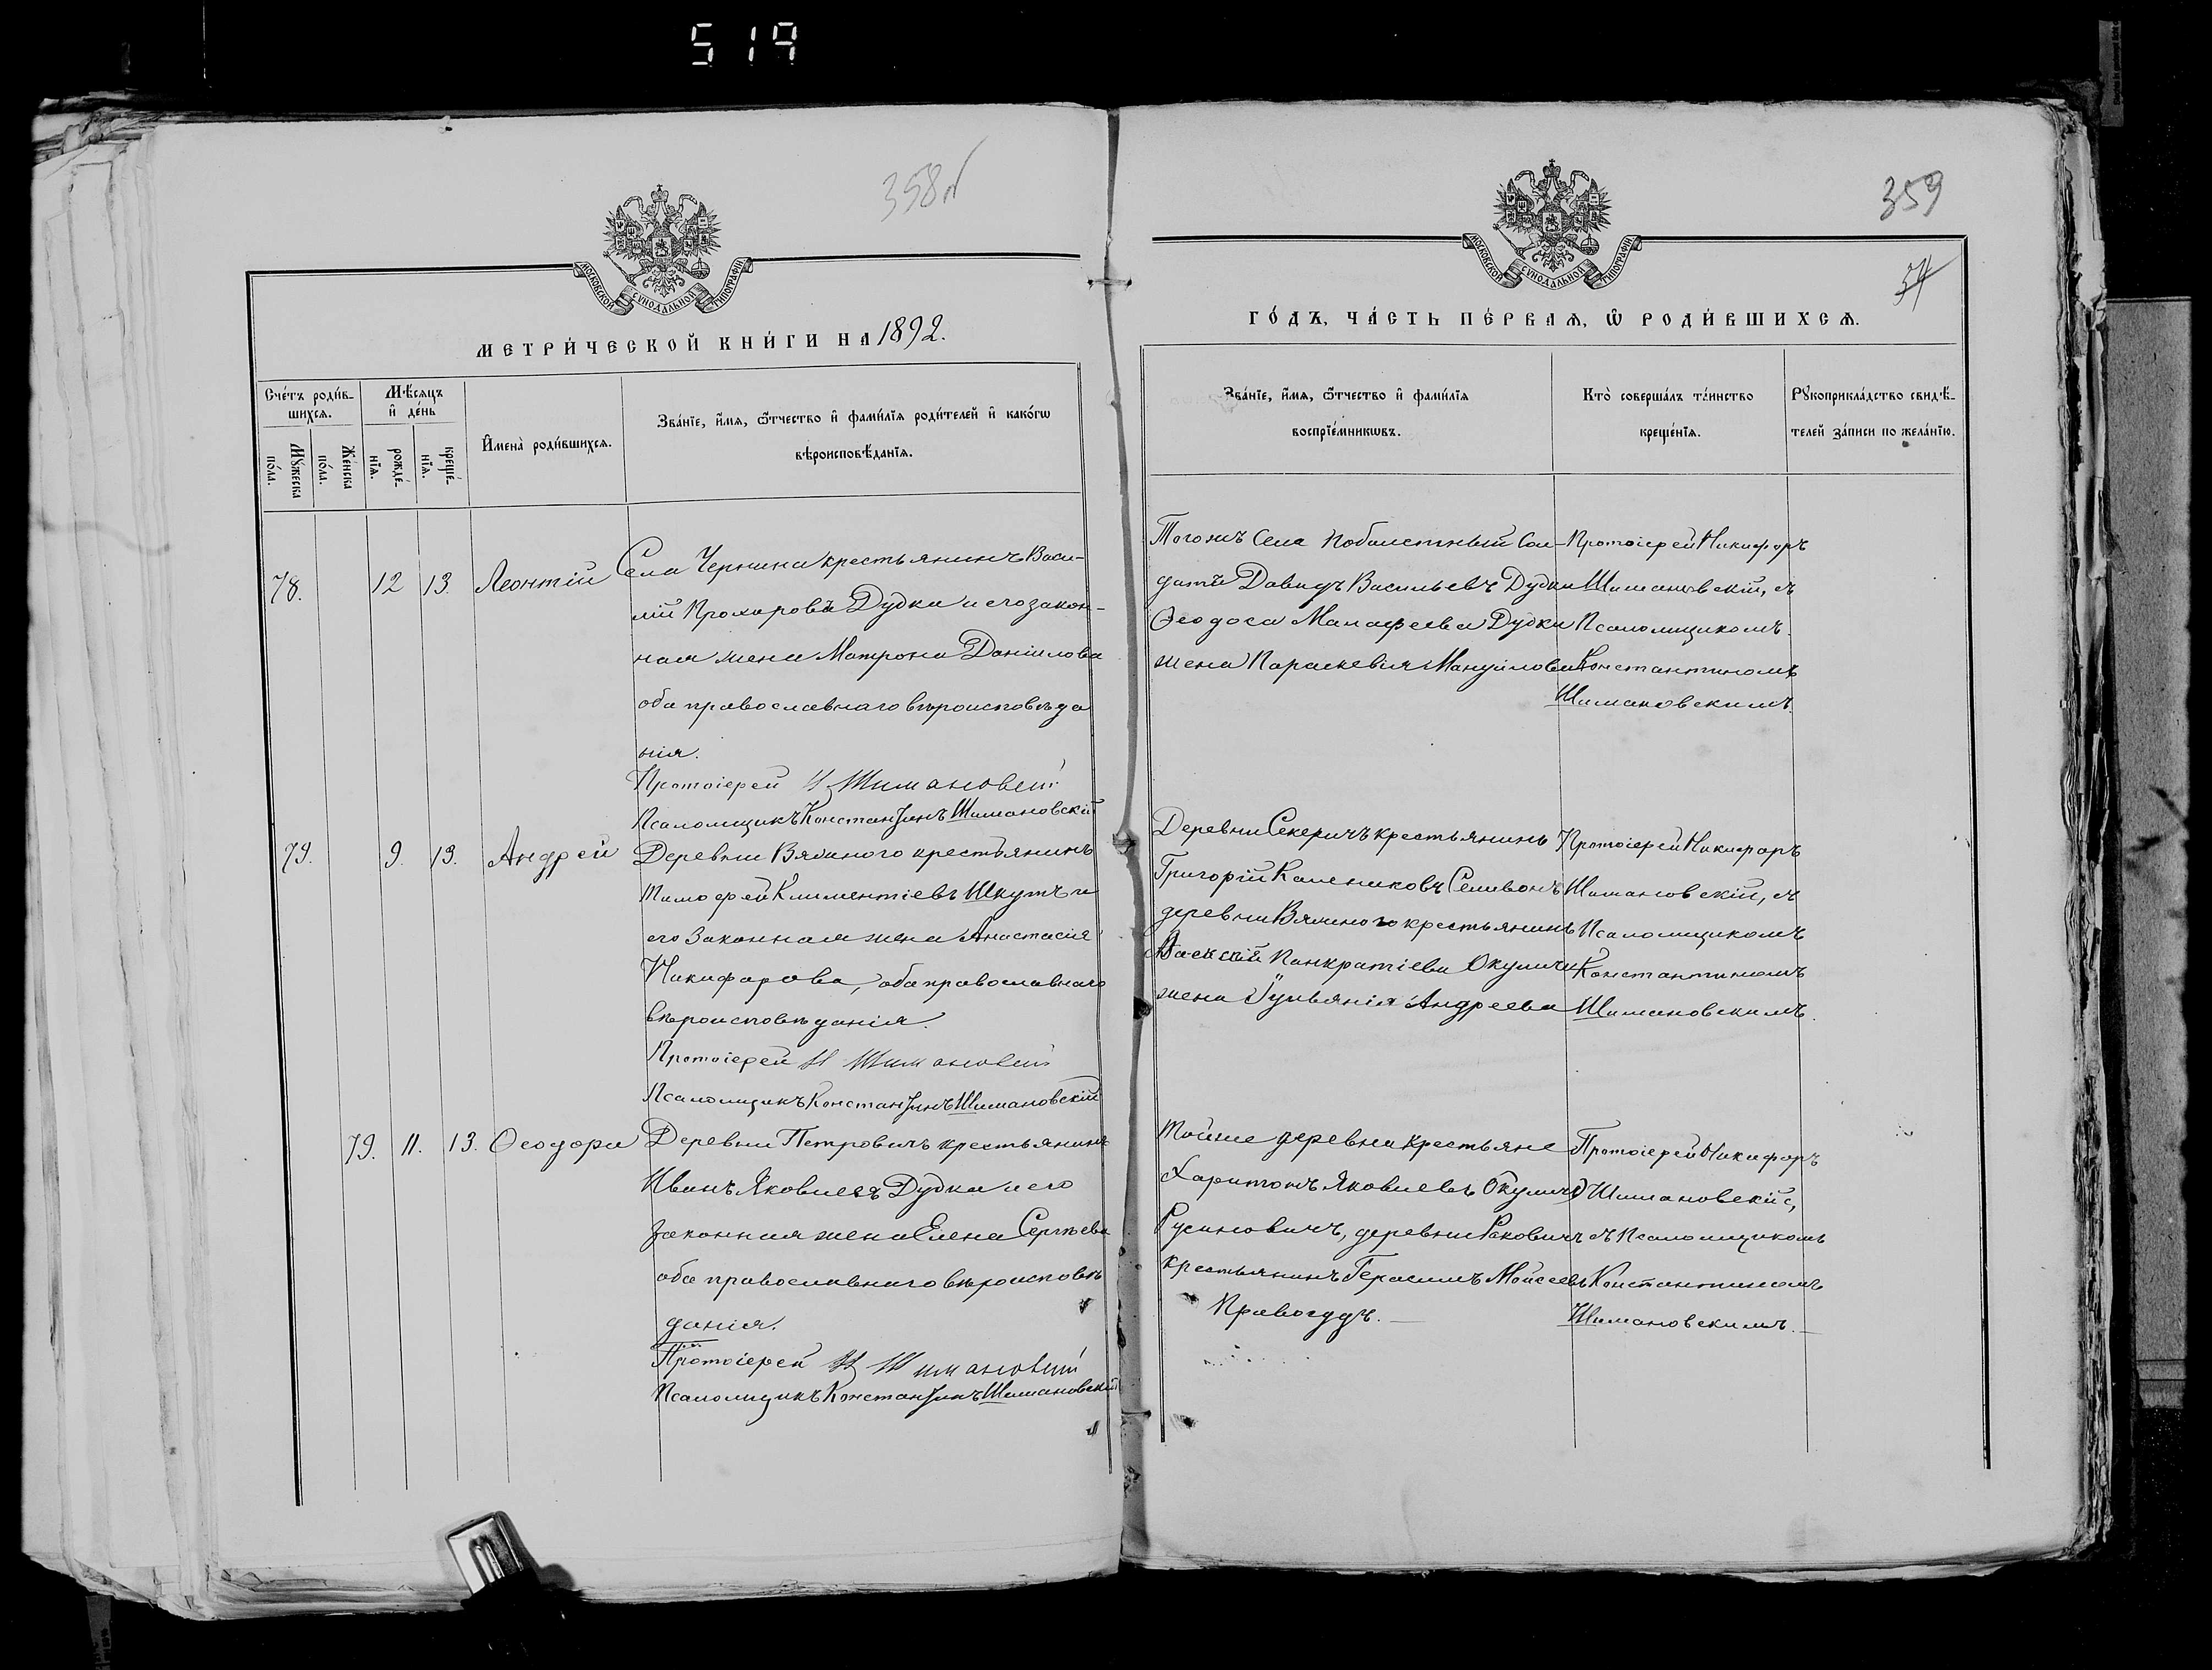 519
358
МОСКОВСКОЙ СѴНОДАЛЬНОЙ ТИПОГРАФІИ
МЕТРИ́ЧЕСКОЙ КНИ́ГИ НА 1892.
Сче́тъ роди́вшихся.
Мꙋ́жеска по́ла.
Же́нска по́ла.
Мѣ́сяцъ и҆ де́нь
рожде́нїя.
креще́нїя.
И҆мена̀ роди́вшихся.
Зва́нїе, и҆́мя, ѻ҆́тчество и҆ фами́лїя роди́телей и҆ како́гѡ
вѣроисповѣ́данїя.
78.
12
13.
Леонтій
Села Чернина крестьянинъ Васи-
лій Прохоровъ Дудка и его закон-
ная жена Матрона Даніилова
оба православнаго вѣроисповѣда
нія.
Протоіерей Н Шимановскій
Псаломщикъ Константинъ Шимановскій
79.
9.
13.
Андрей
Деревни крестьянинъ
Тимофей Климентіевъ Шкутъ и
его законная жена Анастасія
Никифорова, оба православнаго
вѣроисповѣданія.
Протоіерей Н Шимановскій
Псаломщикъ Константинъ Шимановскій
79.
11.
13.
Ѳеодора
Деревни Петровичъ крестьянинъ
Иванъ Яковлевъ Дудка и его
законная жена Елена Сергѣева
оба православнаго вѣроисповѣ
данія.
Протоіерей Н Шимановскій
Псаломщикъ Константинъ Шимановскій
359
МОСКОВСКОЙ СѴНОДАЛЬНОЙ ТИПОГРАФІИ
ГО́ДЪ, ЧА́СТЬ ПЕ́РВАЯ, Ѡ҆ РОДИ́ВШИХСЯ.
Зва́нїе, и҆́мя, ѻ҆́тчество и҆ фами́лїя
воспрїе́мникѡвъ.
Кто̀ соверша́лъ та́инство
креще́нїя.
Рꙋкоприкла́дство свидѣ́-
телей за́писи по жела́нїю.
Тогожъ села Сол-
датъ Давидъ Васильевъ Дудка
Ѳеодоса Малафеева Дудки
жена Параскевія Мануилова
Протоіерей Никифоръ
Шимановскій, съ
Псаломщикомъ
Константиномъ
Шимановскимъ.
Деревни Секеричъ крестьянинъ
Григорій Калениковъ Селивонъ
деревни крестьянина
Панкратіева Окулича
жена Іульянія Андреева
Протоіерей Никифоръ
Шимановскій, съ
Псаломщикомъ
Константиномъ
Шимановскимъ.
Тойже деревни крестьяне
Харитонъ Яковлевъ Окуличъ
Русиновичъ, деревни Раковичъ
крестьянинъ Герасимъ Моисеевъ
Правосудъ.
Протоіерей Никифоръ
Шимановскій,
съ Псаломщикомъ
Константиномъ
Шимановскимъ.